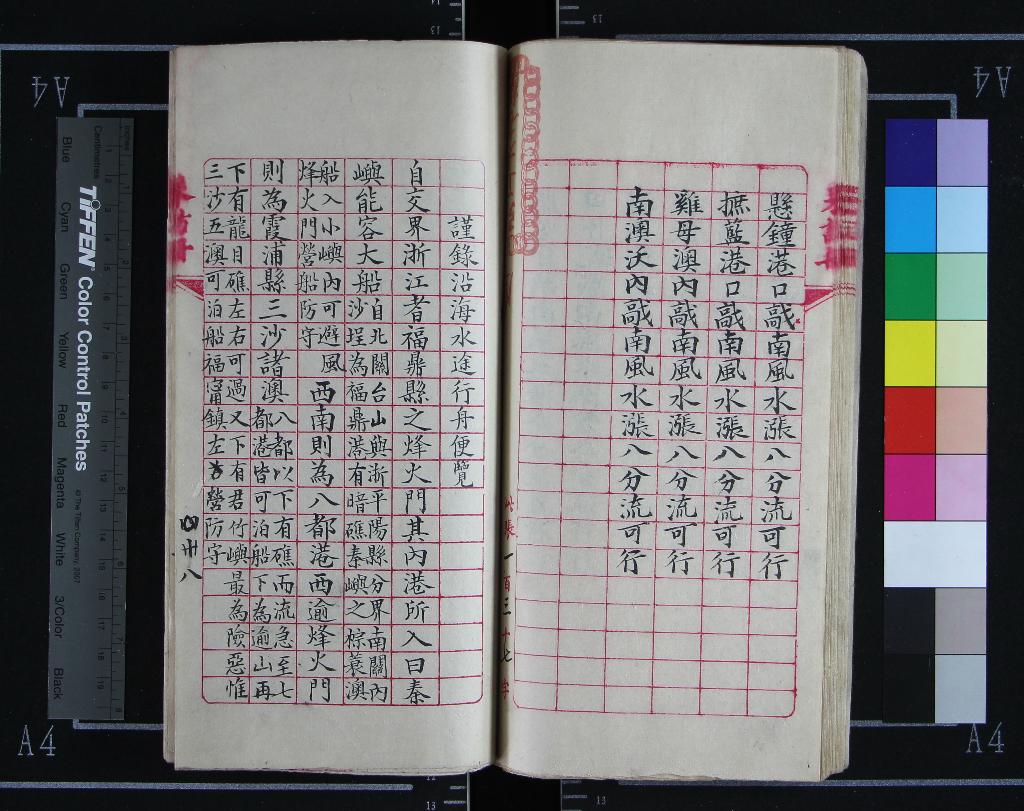 懸鐘港口敲南風水漲八分流可行
摭藍港口敲南風水漲八分流可行
雞母澳內敲南風水漲八分流可行
南澳沃內敲南風水漲八分流可行
謹錄沿海水途行舟便覽
自交界浙江者福鼎縣之烽火門其內港所入曰秦
嶼能容大船自北關台山與浙平陽縣分界南關內
沙埕為福鼎港有暗礁秦嶼之棕蓑澳
船入小嶼內可避風
烽火門營船防守
西南則為八都港西逾烽火門
則為霞浦縣三沙諸澳八都以下有礁而流急至七
都港皆可泊船下為逾山再
下有龍目礁左右可過又下有君竹嶼最為險惡惟
三沙五澳可泊船福寧鎮左營防守
四卅八
A4
A4
A4
A4
TIFFEN Color Control Patches
© The Tiffen Company, 2007
Centimetres
Inches
Blue
Cyan
Green
Yellow
Red
Magenta
White
3/Color
Black